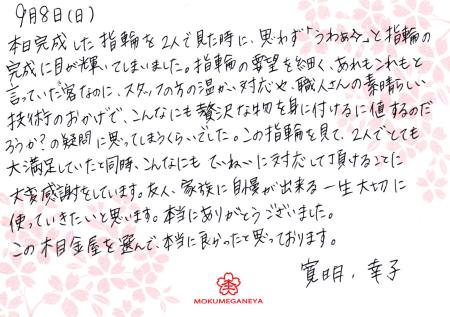 9月8日(日)
本日完成した指輪を2人で見た時に、思わず「うわぁ☆」と指輪の
完成に目が輝いてしまいました。指輪の要望を細く、あれもこれもと
言っていた客なのに、スタッフの方の温かい対応や、職人さんの素晴らしい
技術のおかげで、こんなにも贅沢な物を身に付けるに値するのだ
ろうか?の疑問に思ってしまうくらいでした。この指輪を見て、2人でとても
大満足していたと同時、こんなにも ていねいに対応して頂けることに
大変感謝をしています。友人、家族に自慢が出来る一生大切に
使っていきたいと思います。本当にありがとうございました。
この木目金屋を選んで、本当に良かったと思っております。
寛明、幸子
MOKUMEGANEYA